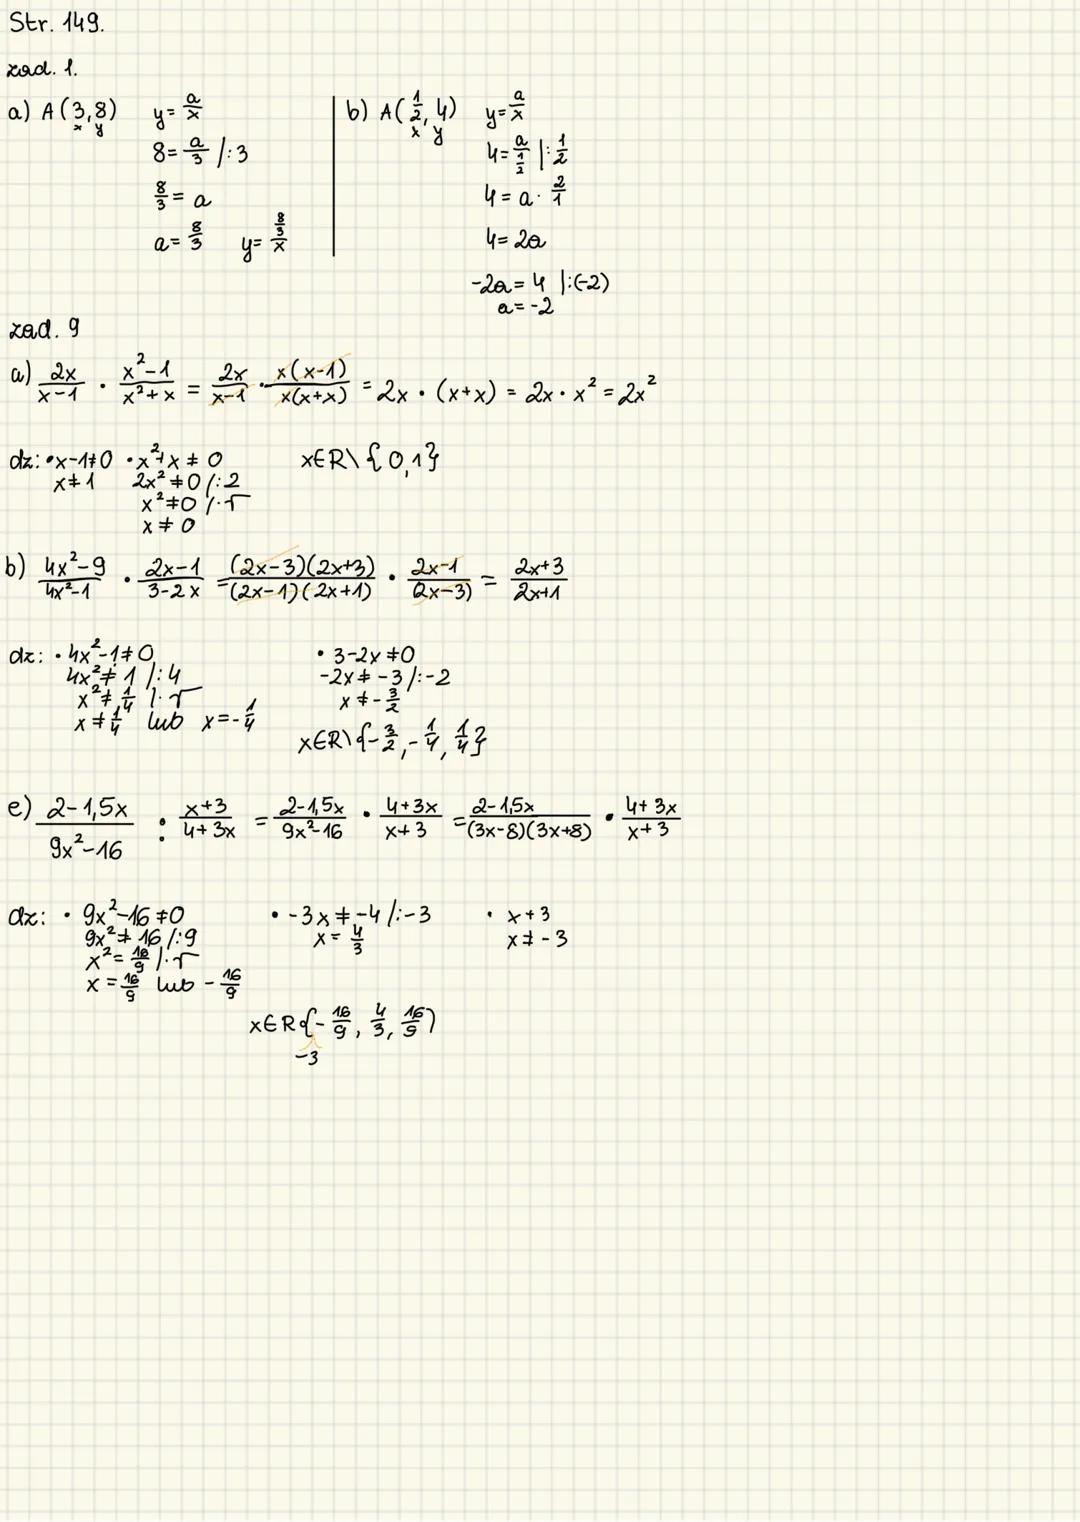 Str. 149.
zad. 1.
a) A(3,8) y = a/x
x y
8 = a/3 /:3
8/3 = a
a = 8/3 y = 8/3/x
b) A(1/2, 4) y = a/x
x y
4 = a/1/2 |:1/2
4 = a · 2/1
4 = 2a
-2a = 4 |:(-2)
a = -2
zad. 9
a) 2x/x-1 · x²-1/x²+x = 2x/x-1 · x(x-1)/x(x+x) = 2x · (x+x) = 2x · x² = 2x²
dz: • x-1≠0 • x²+x ≠ 0 x∈R\{0,1}
x≠1 2x²≠0 /:2
x²≠0 /·√
x ≠ 0
b) 4x²-9/4x²-1 · 2x-1/3-2x = (2x-3)(2x+3)/(2x-1)(2x+1) · 2x-1/(2x-3) = 2x+3/2x+1
dz: • 4x²-1≠0 • 3-2x ≠0
4x²≠ 1 /:4 -2x≠ -3 /:-2
x²≠ 1/4 /·√ x ≠ -3/2
x ≠ 1/4 lub x = -1/4
x∈R\{-3/2, -1/4, 1/4}
e) 2-1,5x/9x²-16 : x+3/4+3x = 2-1,5x/9x²-16 · 4+3x/x+3 = 2-1,5x/(3x-8)(3x+8) · 4+3x/x+3
dz: • 9x²-16≠0 • -3x≠-4 /:-3 • x+3
9x²≠ 16 /:9 x = 4/3 x≠ -3
x² = 16/9 /·√
x = 16/9 lub -16/9
x∈R{-16/9, 4/3, 16/9)
-3